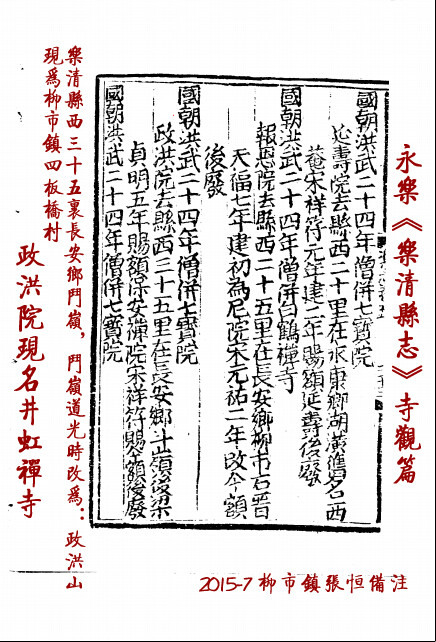 永樂《樂清縣志》寺觀篇
國朝洪武二十四年僧併七寶院
延壽院去縣西二十里在永康鄉湖橫舊名西
菴宋祥符元年建二年賜額延壽後廢
國朝洪武二十四年僧併白鶴禪寺
報恩院去縣西二十五里在長安鄉柳市石晉
天福七年建初為尼院宋元祐二年改今額
後廢
國朝洪武二十四年僧併七寶院
政洪院去縣西三十五里在長安鄉斗嶺後梁
貞明五年賜額保安禪院宋祥符賜今額後廢
國朝洪武二十四年僧併七寶院
樂清縣西三十五裏長安鄉鬥嶺,鬥嶺道光時改為:政洪山
現為柳市鎮四板橋村
政洪院現名井虹禪寺
2015-7柳市鎮張恒備注